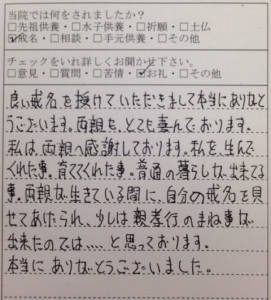 当院では何をされましたか？
□先祖供養・□水子供養・□祈願・□土仏
☑戒名・□相談・□手元供養・□その他
チェックをいれ詳しくお聞かせ下さい。
□意見・□質問・□苦情・☑お礼・□その他
良い戒名を授けていただきまして本当にありがと
うございます。両親も、とても喜んでおります。
私は、両親へ感謝しております。私を、生んで
くれた事。育ててくれた事。普通の暮らしが、出来てる
事。両親が生きている間に、自分の戒名を見
せてあげられ、少しは親孝行のまね事が
出来たのでは、、、、と思っております。
本当にありがとうございました。